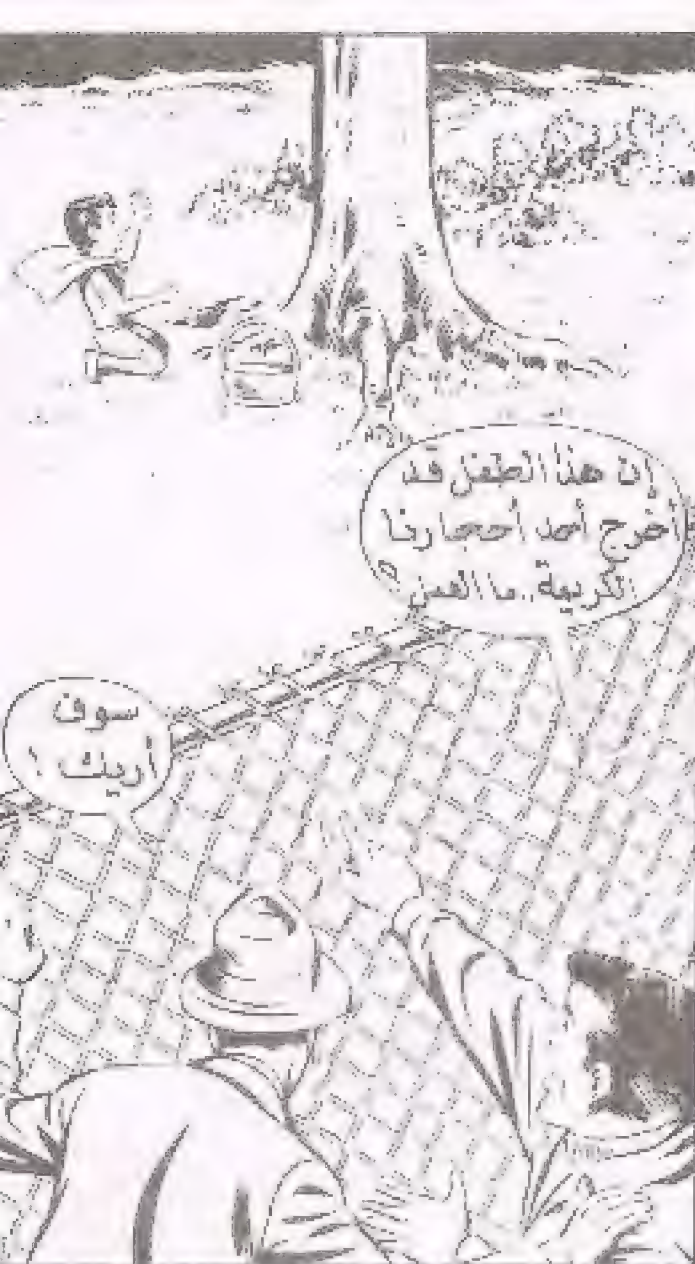 إن هذا الطفل قد
أخرج أحد أحجارنا
الكريمة.. ما العمل
سوف
اريك !